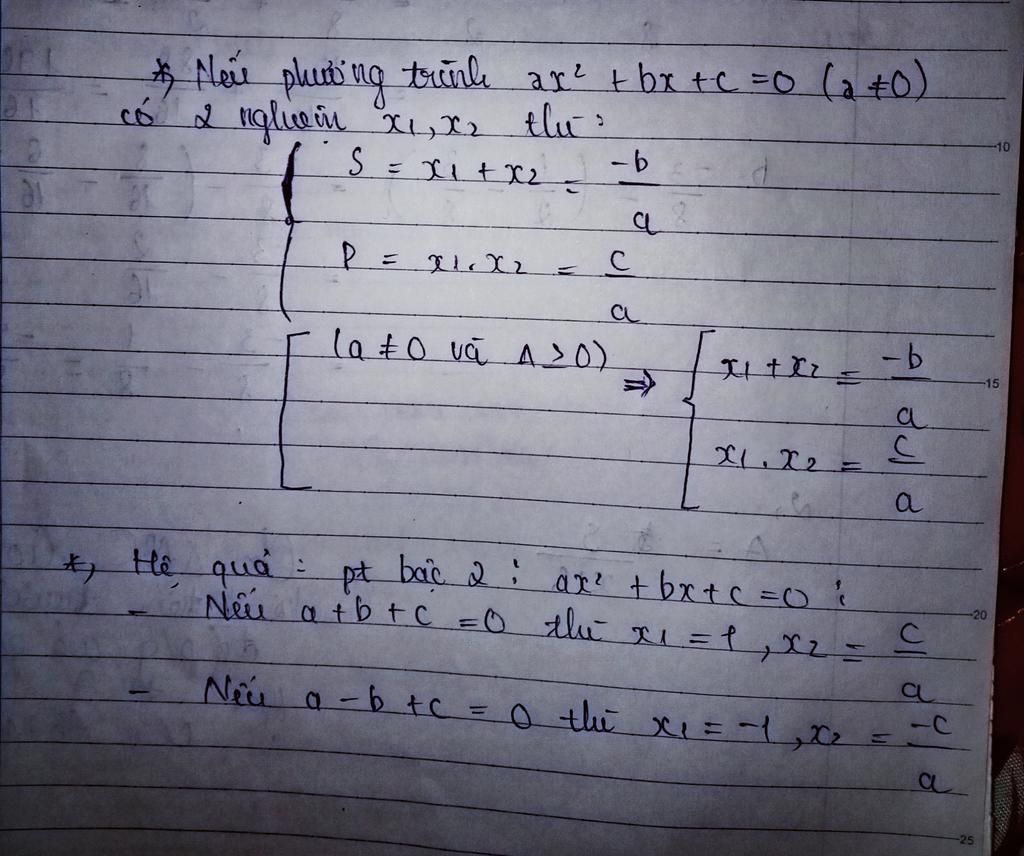 *, Nếu phương trình ax² + bx + c = 0 (a ≠ 0)
có 2 nghiệm x₁, x₂ thì:
S = x₁ + x₂ = -b/a
P = x₁.x₂ = c/a
(a ≠ 0 và Δ ≥ 0) => x₁ + x₂ = -b/a
x₁.x₂ = c/a
*, Hệ quả: pt bậc 2: ax² + bx + c = 0:
- Nếu a + b + c = 0 thì x₁ = 1, x₂ = c/a
- Nếu a - b + c = 0 thì x₁ = -1, x₂ = -c/a
10
15
20
25